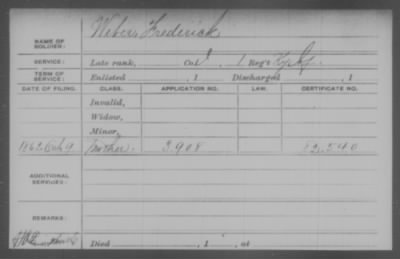 Weber, Frederick
NAME OF SOLDIER:
SERVICE: Late rank, Co. 1 Reg't
TERM OF SERVICE: Enlisted , 1 Discharged , 1
DATE OF FILING. CLASS. APPLICATION NO. LAW. CERTIFICATE NO.
Invalid,
Widow,
Minor,
1862 Mother 3908
ADDITIONAL SERVICES:
REMARKS:
Died , 1 , at